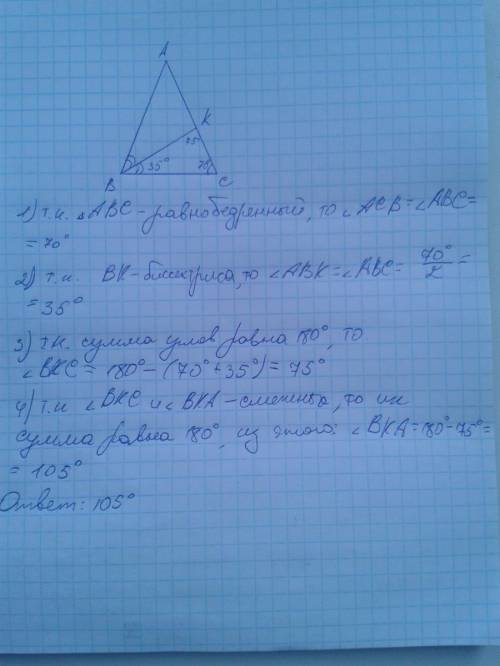 A
K
75°
35°
70°
B
C
1) т.к. △ABC - равнобедренный, то ∠ACB = ∠ABC =
= 70°
2) т.к. BK - биссектриса, то ∠ABK = ∠ABC = 70°/2 =
= 35°
3) т.к. сумма углов равна 180°, то
∠BKC = 180° - (70° + 35°) = 75°
4) т.к ∠BKC и ∠BKA - смежные, то их
сумма равна 180°, из этого: ∠BKA = 180° - 75° =
= 105°
Ответ: 105°